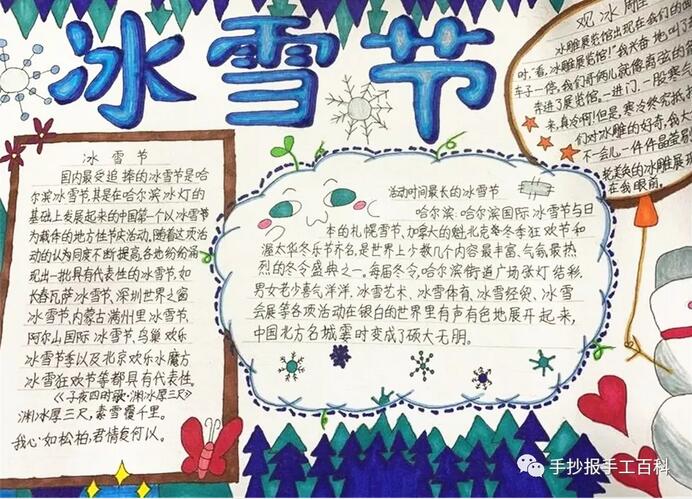 冰雪节
冰雪节
国内最受追捧的冰雪节是哈
尔滨冰雪节,其是在哈尔滨冰灯的
基础上发展起来的中国第一个以冰雪节
为载体的地方性节庆活动。随着这项活
动的认为同度不断提高,各地纷纷涌
现出一批具有代表性的冰雪节,如
长春瓦萨冰雪节,深圳世界之窗
冰雪节,内蒙古满州里冰雪节,
阿尔山国际冰雪节、鸟巢欢乐
冰雪节季以及北京欢乐水魔方
冰雪狂欢节等都具有代表性。
《子夜四时歌·渊冰厚三尺》
渊冰厚三尺,素雪覆千里。
我心如松柏,君情复何似。
活动时间最长的冰雪节
哈尔滨:哈尔滨国际冰雪节与日
本的札幌雪节、加拿大的魁北克冬季狂欢节和
渥太华冬乐节齐名,是世界上少数几个内容最丰富、气氛最热
烈的冬令盛典之一。每届冬令,哈尔滨街道广场张灯结彩,
男女老少喜气洋洋,冰雪艺术、冰雪体育、冰雪经贸、冰雪
会展等各项活动在银白的世界里有声有色地展开起来,
中国北方名城霎时变成了硕大无朋。
观冰雕
冰雕展览馆出现在我们的
时,"看,冰雕展览馆!"我兴奋地叫了
车子一停,我们哥俩就像离弦的
奔进了展览馆。一进门,一股寒
来,真冷啊!但是,寒冷终究抵
们对冰雕的好奇,我大
不一会儿一件件晶莹
在我眼前。
手抄报手工百科